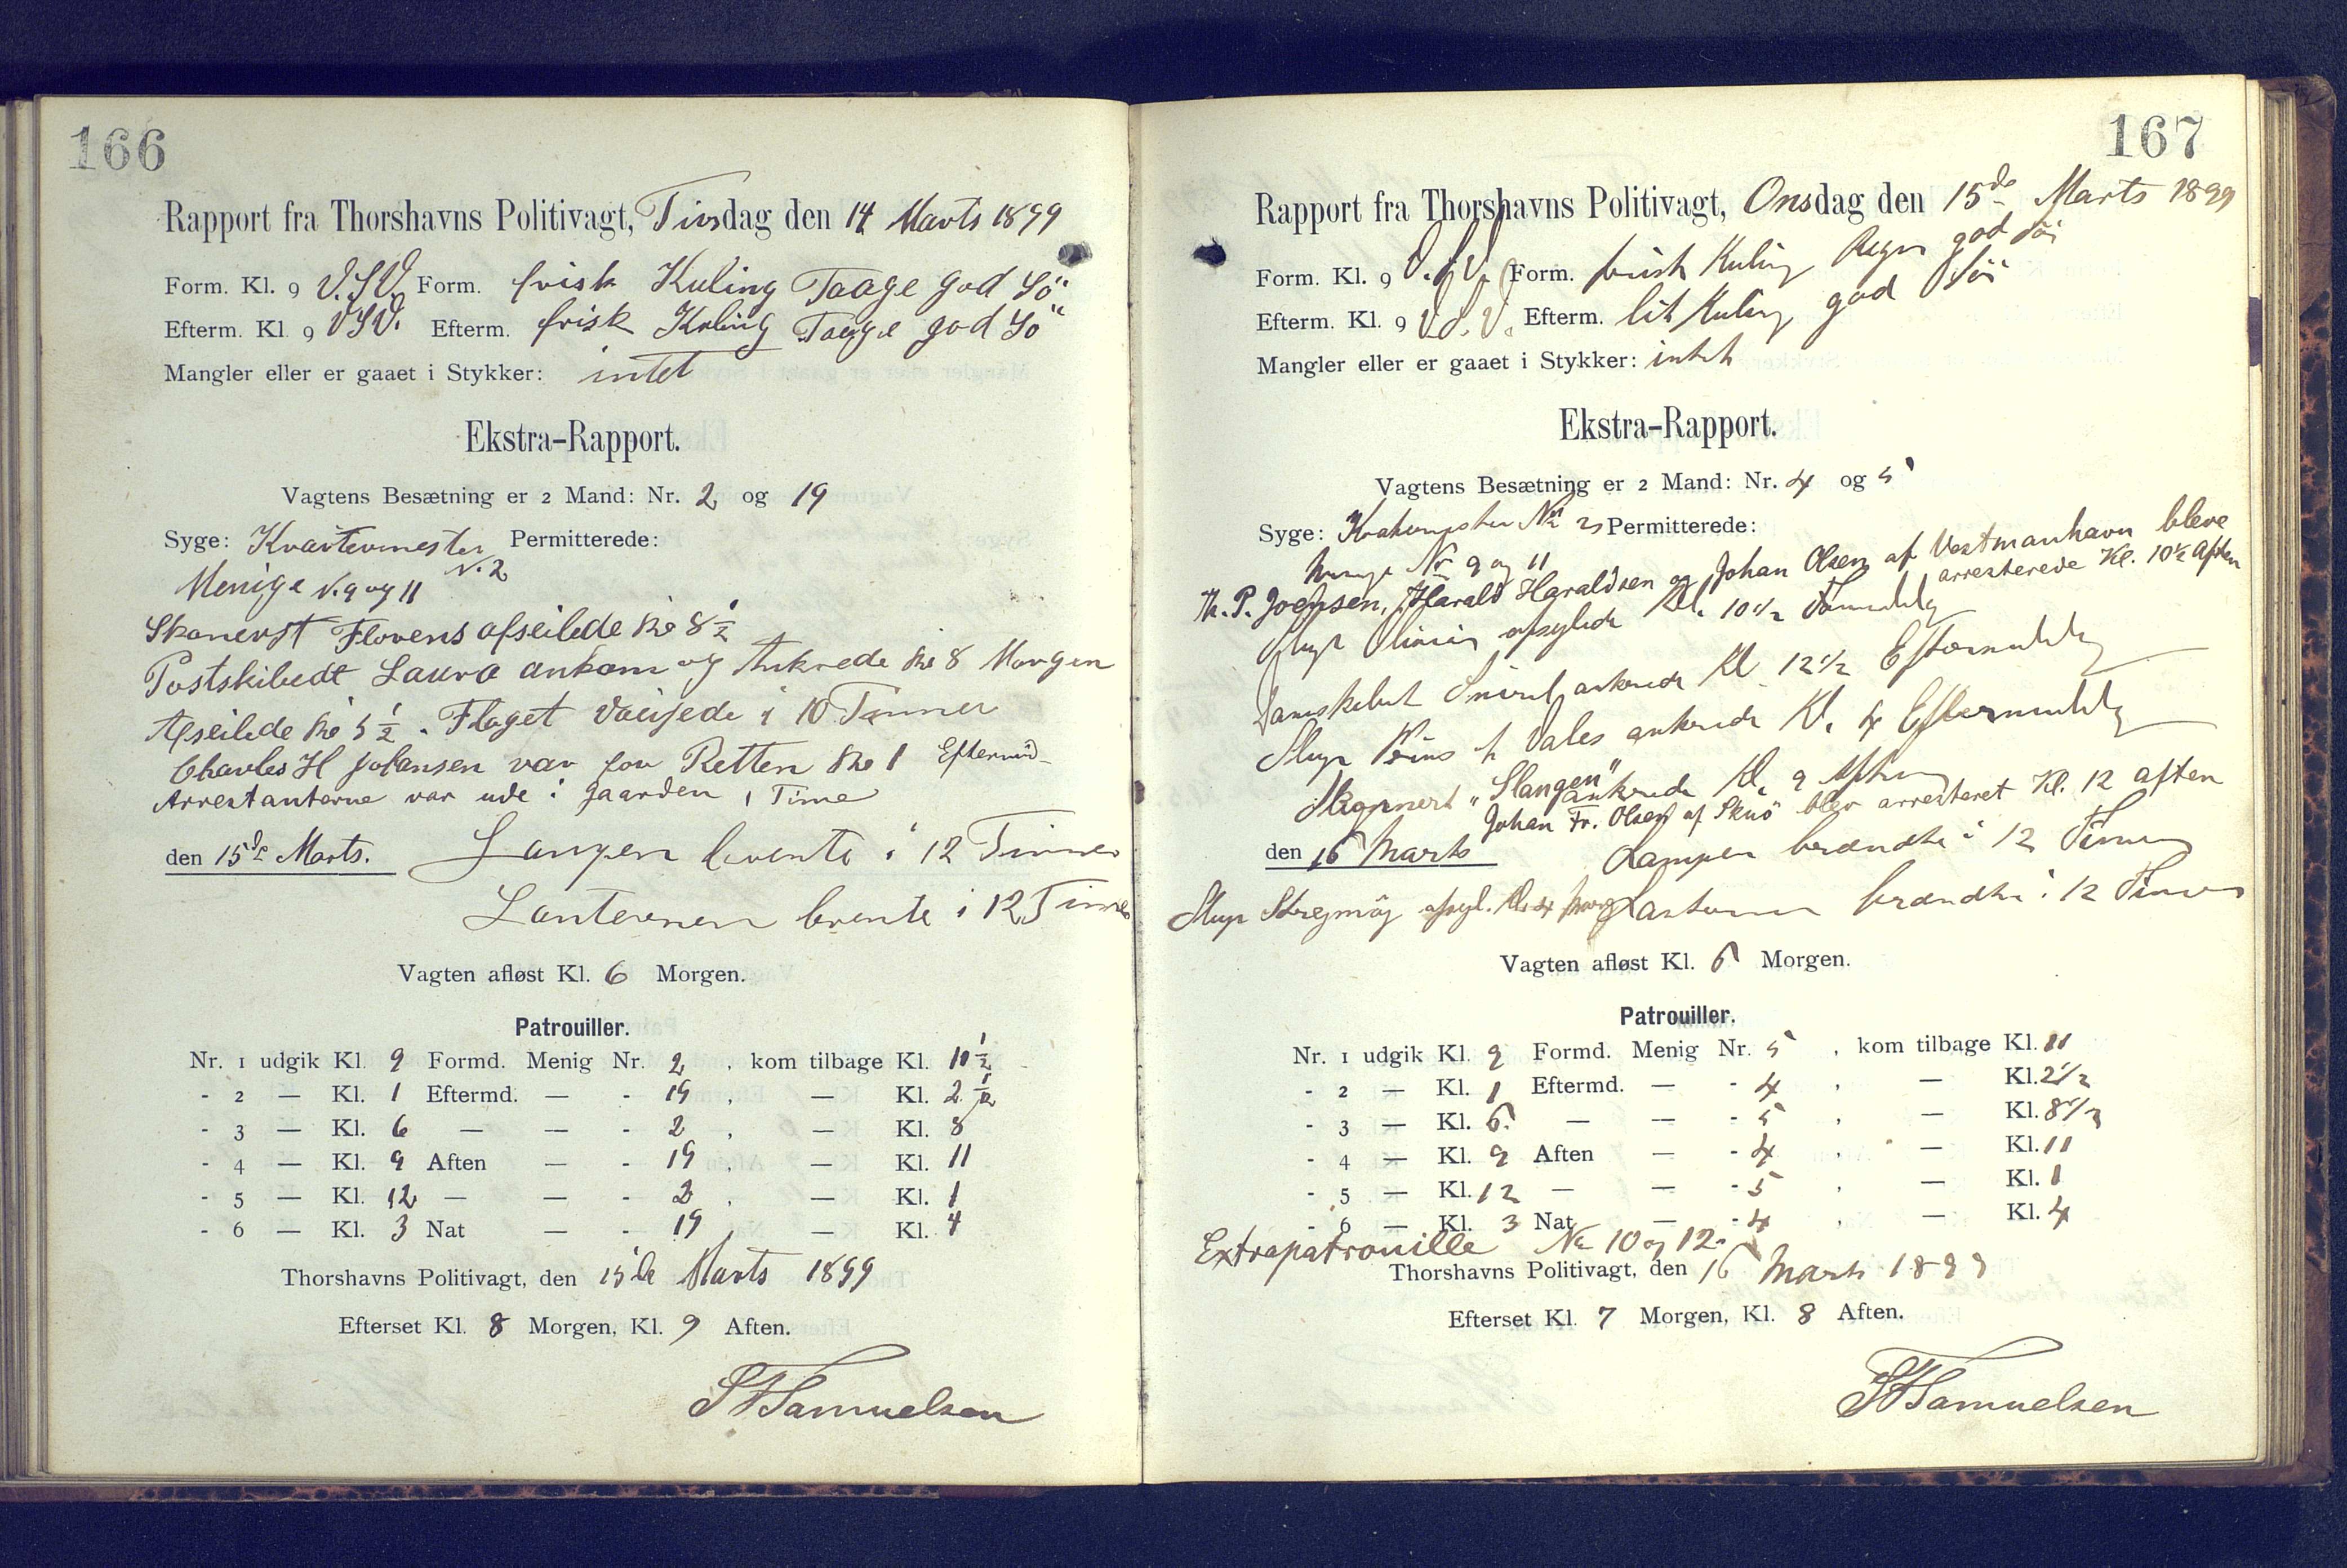 166
Rapport fra Thorshavns Politivagt, Tirsdag den 14 Marts 1899
Form. Kl. 9 V.S.V. Form. frisk Kuling Taage god Sö
Efterm. Kl. 9 VSV. Efterm. frisk Kuling Taage god Sö
Mangler eller er gaaet i Stykker: intet
Ekstra-Rapport.
Vagtens Besætning er 2 Mand: Nr. 2 og 19
Syge: Kvartermester Permitterede:
N. 2
Menige N. 9 og 11
Skonert Florens afseilede Kl 8 1/2
Postskibedt Laura ankom og Ankrede Kl 8 Morgen
Afseilede Kl 5 1/2. Flaget Vaiede i 10 Timer
Charles H Johansen var for Retten Kl 1 Eftermid
Arrestanterne var ude i gaarden 1 Time
den 15de Marts. Lampen brente i 12 Timer
Lanternen brente i 12 Timer
Vagten afløst Kl. 6 Morgen.
Patrouiller.
Nr. 1 udgik Kl. 9 Formd. Menig Nr. 2, kom tilbage Kl. 10 1/2
- 2 — Kl. 1 Eftermd. — - 19, — Kl. 2 1/2
- 3 — Kl. 6 — — - 2, — Kl. 8
- 4 — Kl. 9 Aften — - 19, — Kl. 11
- 5 — Kl. 12 — — - 2, — Kl. 1
- 6 — Kl. 3 Nat — - 19, — Kl. 4
Thorshavns Politivagt, den 15de Marts 1899
Efterset Kl. 8 Morgen, Kl. 9 Aften.
Samuelsen
167
Rapport fra Thorshavns Politivagt, Onsdag den 15de Marts 1899
Form. Kl. 9 V.S.V. Form. frisk Kuling Regn god Söi
Efterm. Kl. 9 V.S.V. Efterm. lit Kuling god Söi
Mangler eller er gaaet i Stykker: intet
Ekstra-Rapport.
Vagtens Besætning er 2 Mand: Nr. 4 og 5
Syge: Kvartermester Nr 2 Permitterede:
Menige Nr 9 og 11
Th. P. Joensen, Harald Haraldsen og Johan Olsen af Vestmanhavn bleve
arresterede Kl. 10 1/2 Aften
Slup afseylede Kl. 10 1/2 Formiddag
Damskibet Smiril ankrede Kl 12 1/2 Eftermiddag
Slup Prins of Vales ankrede Kl. 4 Eftermiddag
Skonnert "Slangen" ankrede Kl. 9 Aften
Johan Fr. Olsen af Skuö blev arresteret Kl. 12 aften
den 16 Marts Lampen brændte i 12 Timer
Slup Strejmöy afsejl. Kl 4 Morg Lanternen brændte i 12 Timer
Vagten afløst Kl. 6 Morgen.
Patrouiller.
Nr. 1 udgik Kl. 9 Formd. Menig Nr. 5, kom tilbage Kl. 11
- 2 — Kl. 1 Eftermd. — - 4, — Kl. 2 1/2
- 3 — Kl. 6. — — - 5, — Kl. 8 1/2
- 4 — Kl. 9 Aften — - 4, — Kl. 11
- 5 — Kl. 12 — — - 5, — Kl. 1
- 6 — Kl. 3 Nat — - 4, — Kl. 4
Extrapatrouille Nr 10 og 12.
Thorshavns Politivagt, den 16 Marts 1899
Efterset Kl. 7 Morgen, Kl. 8 Aften.
Samuelsen